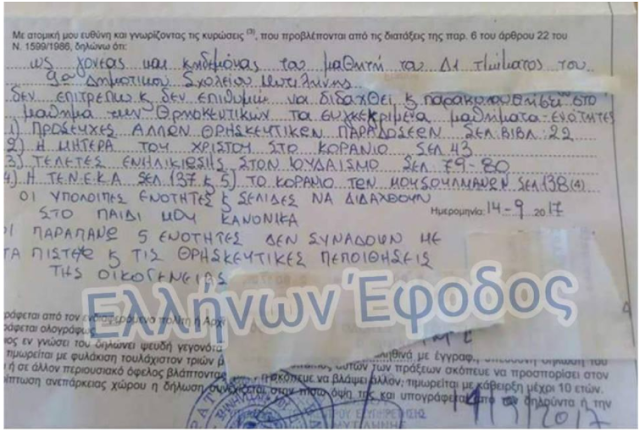 Με ατομική μου ευθύνη και γνωρίζοντας τις κυρώσεις (3), που προβλέπονται από τις διατάξεις της παρ. 6 του άρθρου 22 του
Ν. 1599/1986, δηλώνω ότι:
ως γονέας και κηδεμόνας του μαθητή του Δ1 τμήματος του
9ου Δημοτικού Σχολείου Μυτιλήνης
δεν επιτρέπω & δεν επιθυμώ να διδαχθεί & παρακολουθήσει στο
μάθημα των Θρησκευτικών τα συγκεκριμένα μαθήματα-ενότητες
1) ΠΡΟΣΕΥΧΕΣ ΑΛΛΩΝ ΘΡΗΣΚΕΥΤΙΚΩΝ ΠΑΡΑΔΟΣΕΩΝ ΣΕΛ. ΒΙΒΛ: 22
2) Η ΜΗΤΕΡΑ ΤΟΥ ΧΡΙΣΤΟΥ ΣΤΟ ΚΟΡΑΝΙΟ ΣΕΛ 43
3) ΤΕΛΕΤΕΣ ΕΝΗΛΙΚΙΩΣΗΣ ΣΤΟΝ ΙΟΥΔΑΙΣΜΟ ΣΕΛ. 79-80
4) Η ΤΕΝΕΚΑ ΣΕΛ 137 & 5) ΤΟ ΚΟΡΑΝΙΟ ΤΩΝ ΜΟΥΣΟΥΛΜΑΝΩΝ ΣΕΛ 138 (4)
ΟΙ ΥΠΟΛΟΙΠΕΣ ΕΝΟΤΗΤΕΣ & ΣΕΛΙΔΕΣ ΝΑ ΔΙΔΑΧΘΟΥΝ
ΣΤΟ ΠΑΙΔΙ ΜΟΥ ΚΑΝΟΝΙΚΑ
Ημερομηνία: 14-9 2017
ΟΙ ΠΑΡΑΠΑΝΩ 5 ΕΝΟΤΗΤΕΣ ΔΕΝ ΣΥΝΑΔΟΥΝ ΜΕ
ΤΑ ΠΙΣΤΕΥΩ & ΤΙΣ ΘΡΗΣΚΕΥΤΙΚΕΣ ΠΕΠΟΙΘΗΣΕΙΣ
ΤΗΣ ΟΙΚΟΓΕΝΕΙΑΣ
Ελλήνων Έφοδος
γράφεται από τον ενδιαφερόμενο πολίτη ή Αρχή
γράφεται ολογράφως
ος εν γνώσει του δηλώνει ψευδή γεγονότα
τιμωρείται με φυλάκιση τουλάχιστον τριών
αυτών των πράξεων σκόπευε να προσπορίσει στον
ή σε άλλον περιουσιακό όφελος βλάπτοντας
σκόπευε να βλάψει άλλον, τιμωρείται με κάθειρξη μέχρι 10 ετών.
ίπτωση ανεπάρκειας χώρου η δήλωση
στην πίσω όψη της και υπογράφεται από τον δηλούντα ή την
14/9/2017